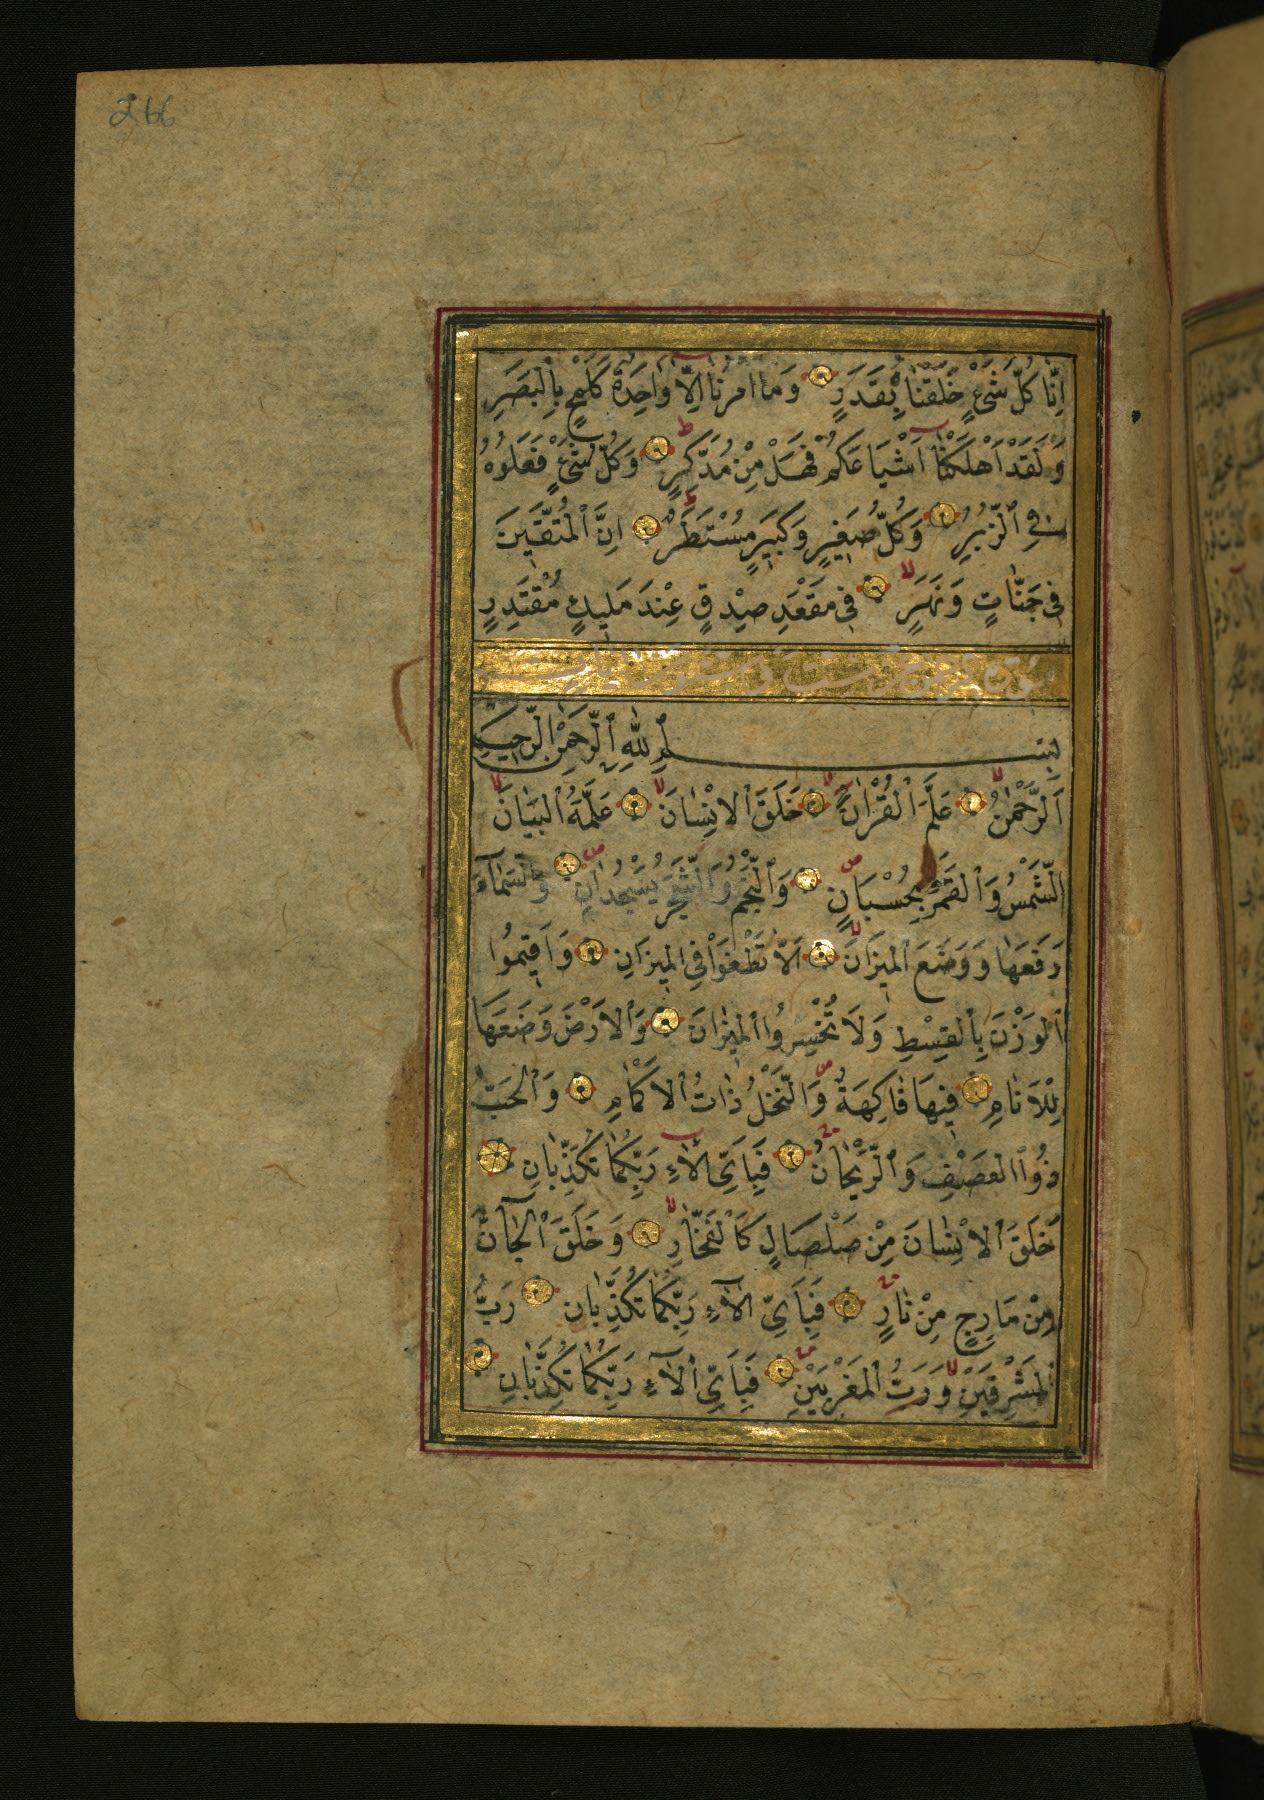 266
اِنَّا كُلَّ شَيْءٍ خَلَقْنَاهُ بِقَدَرٍ وَمَا اَمْرُنَا اِلَّا وَاحِدَةٌ كَلَمْحٍ بِالْبَصَرِ
وَلَقَدْ اَهْلَكْنَا اَشْيَاعَكُمْ فَهَلْ مِنْ مُدَّكِرٍ وَكُلُّ شَيْءٍ فَعَلُوهُ
فِي الزُّبُرِ وَكُلُّ صَغِيرٍ وَكَبِيرٍ مُسْتَطَرٌ اِنَّ الْمُتَّقِينَ
فِي جَنَّاتٍ وَنَهَرٍ فِي مَقْعَدِ صِدْقٍ عِنْدَ مَلِيكٍ مُقْتَدِرٍ
سورة الرحمن
بِسْمِ اللّٰهِ الرَّحْمٰنِ الرَّحِيمِ
اَلرَّحْمٰنُ عَلَّمَ الْقُرْاٰنَ خَلَقَ الْاِنْسَانَ عَلَّمَهُ الْبَيَانَ
اَلشَّمْسُ وَالْقَمَرُ بِحُسْبَانٍ وَالنَّجْمُ وَالشَّجَرُ يَسْجُدَانِ وَالسَّمَآءَ
رَفَعَهَا وَوَضَعَ الْمِيزَانَ اَلَّا تَطْغَوْا فِي الْمِيزَانِ وَاَقِيمُوا
الْوَزْنَ بِالْقِسْطِ وَلَا تُخْسِرُوا الْمِيزَانَ وَالْاَرْضَ وَضَعَهَا
لِلْاَنَامِ فِيهَا فَاكِهَةٌ وَالنَّخْلُ ذَاتُ الْاَكْمَامِ وَالْحَبُّ
ذُو الْعَصْفِ وَالرَّيْحَانُ فَبِاَيِّ اٰلَاءِ رَبِّكُمَا تُكَذِّبَانِ
خَلَقَ الْاِنْسَانَ مِنْ صَلْصَالٍ كَالْفَخَّارِ وَخَلَقَ الْجَآنَّ
مِنْ مَارِجٍ مِنْ نَارٍ فَبِاَيِّ اٰلَآءِ رَبِّكُمَا تُكَذِّبَانِ رَبُّ
الْمَشْرِقَيْنِ وَرَبُّ الْمَغْرِبَيْنِ فَبِاَيِّ اٰلَآءِ رَبِّكُمَا تُكَذِّبَانِ